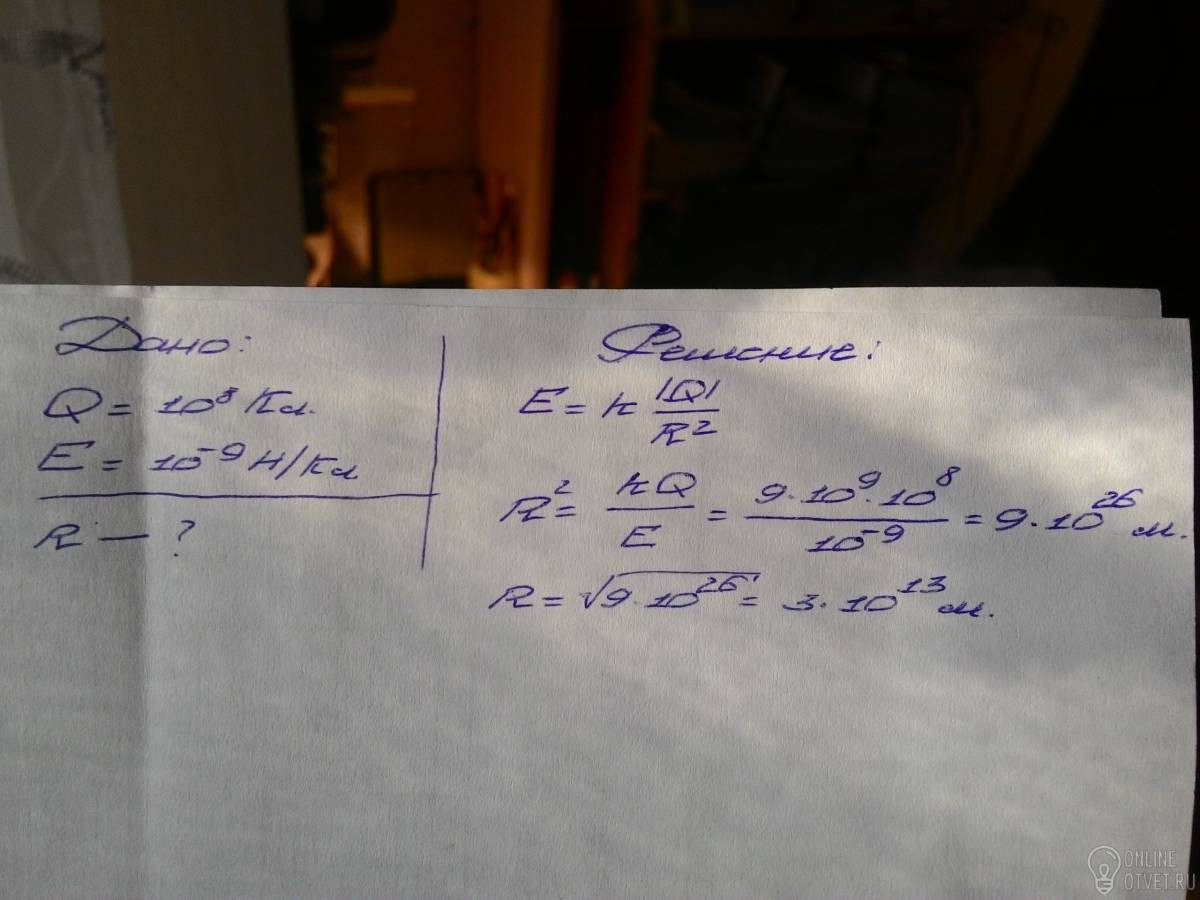 Дано:
Q = 10⁸ Кл.
E = 10⁻⁹ Н/Кл
R — ?
Решение:
E = k |Q| / R²
R² = kQ / E = 9·10⁹·10⁸ / 10⁻⁹ = 9·10²⁶ м.
R = √9·10²⁶ = 3·10¹³ м.
ONLINE
OTVET.RU